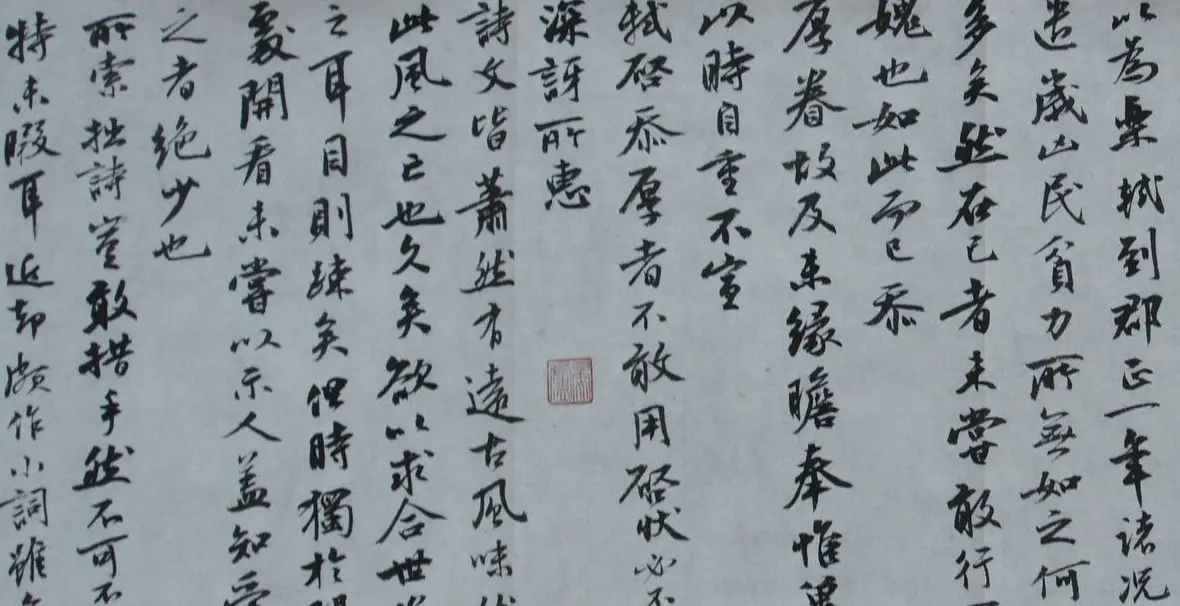 以為樂軾到郡正一年諸况
遣歲凶民貧力所無如之何
多矣然在己者未嘗敢行
媿也如此而已忝
厚眷故及未緣瞻奉惟冀
以時自重不宣
軾啓忝厚者不敢用啓狀必不
深訝所惠
詩文皆蕭然有遠古風味
此風之亡也久矣欲以求合世
之耳目則疎矣但時獨於
處開看未嘗以示人蓋知愛
之者絶少也
所索拙詩豈敢措手然不可不
特未暇耳近却頗作小詞雖